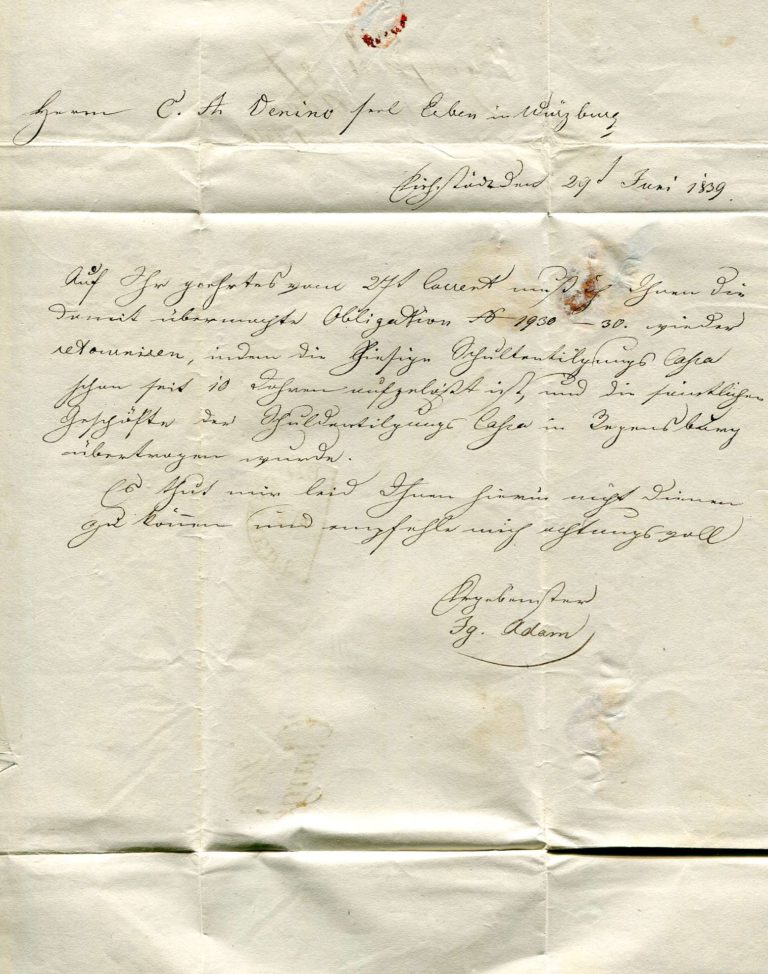 Herrn C. A. Venino seel Erben in Würzburg
Eichstädt den 29t Juni 1839.
Auf Ihr geehrtes vom 27t Courent muß ich Ihnen die
damit übermachte Obligation No 1930 – 30. wieder
retourniren, indem die hiesige Schultentilgungs Cassa
schon seit 10 Jahren aufgelößt ist, und die sämtlichen
Geschäfte der Schuldentilgungs Cassa in Regensburg
übertragen wurde.
Es thut mir leid Ihnen hierin nicht dienen
zu können und empfehle mich achtungsvoll
Ergebenster
Jg. Adam